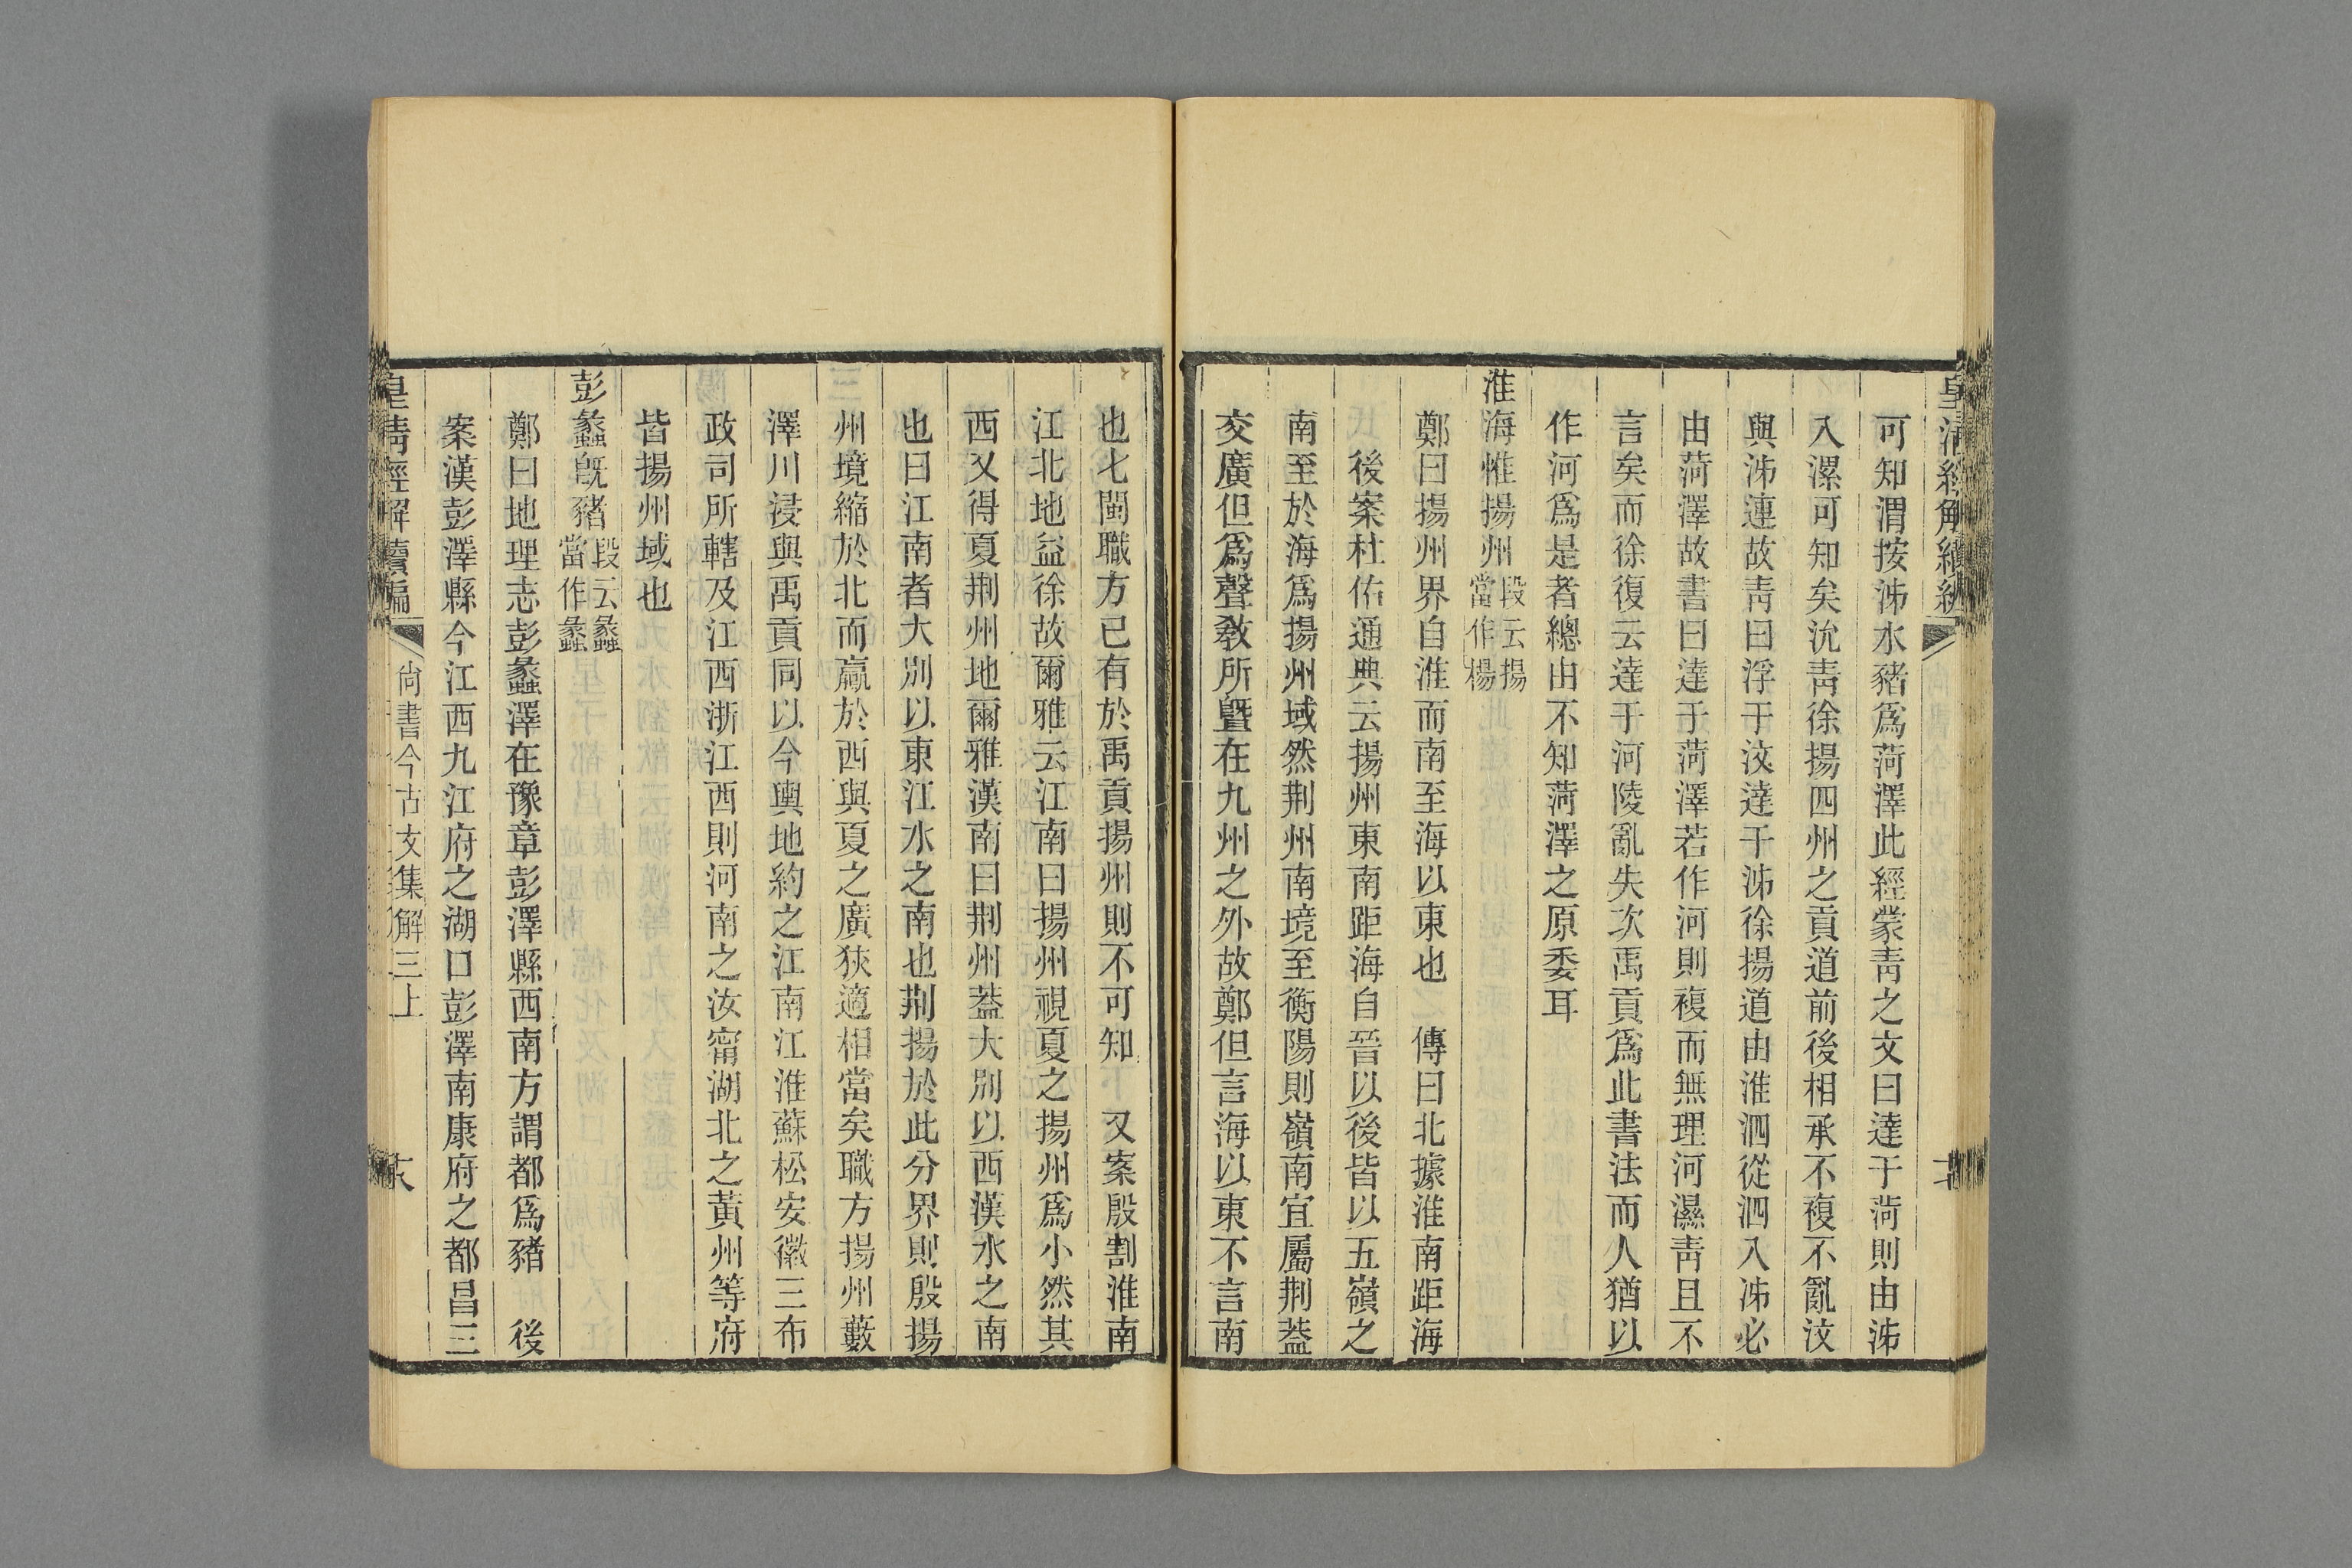 皇清經解續編
可知渭按泲水豬爲菏澤此經蒙靑之文曰達于菏則由泲
入漯可知矣沇靑徐揚四州之貢道前後相承不複不亂汶
與泲連故靑曰浮于汶達于泲徐揚道由淮泗從泗入泲必
由菏澤故書曰達于菏澤若作河則複而無理河濕靑且不
言矣而徐復云達于河陵亂失次禹貢爲此書法而人猶以
作河爲是者總由不知菏澤之原委耳
淮海惟揚州段云揚當作楊
鄭曰揚州界自淮而南至海以東也　傳曰北據淮南距海
後案杜佑通典云揚州東南距海自晉以後皆以五嶺之
南至於海爲揚州域然荆州南境至衡陽則嶺南宜屬荆葢
交廣但爲聲敎所曁在九州之外故鄭但言海以東不言南
也七閩職方已有於禹貢揚州則不可知　又案殷割淮南
江北地益徐故爾雅云江南曰揚州視夏之揚州爲小然其
西又得夏荆州地爾雅漢南曰荆州葢大別以西漢水之南
也曰江南者大別以東江水之南也荆揚於此分界則殷揚
州境縮於北而贏於西與夏之廣狹適相當矣職方揚州藪
澤川浸與禹貢同以今輿地約之江南江淮蘇松安徽三布
政司所轄及江西浙江西則河南之汝甯湖北之黃州等府
皆揚州域也
彭蠡旣豬段云蠡當作蠡
鄭曰地理志彭蠡澤在豫章彭澤縣西南方謂都爲豬　後
案漢彭澤縣今江西九江府之湖口彭澤南康府之都昌三
皇淸經解續編　尙書今古文集解三上　六